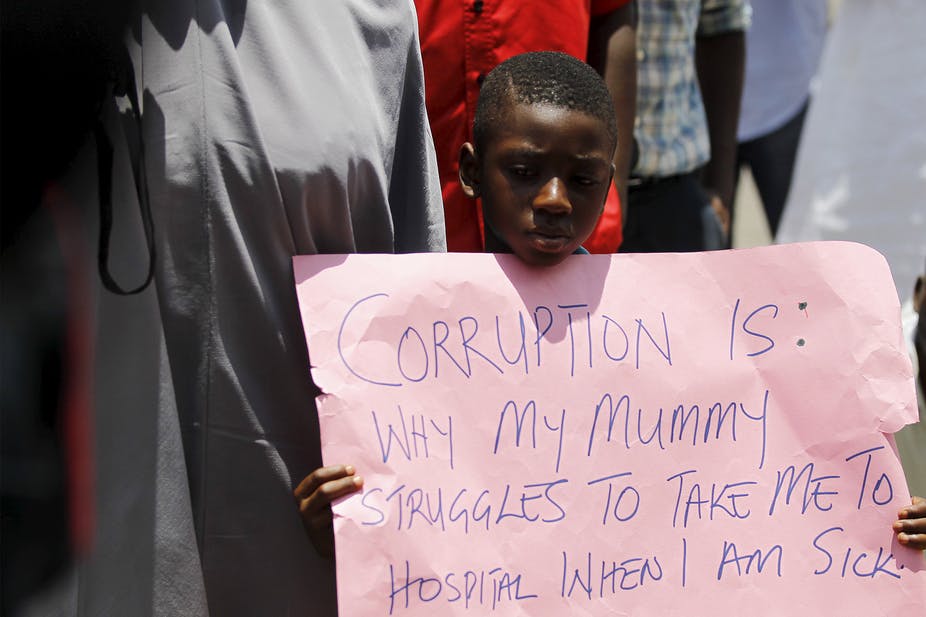 CORRUPTION IS:
WHY MY MUMMY
STRUGGLES TO TAKE ME TO
HOSPITAL WHEN I AM SICK.